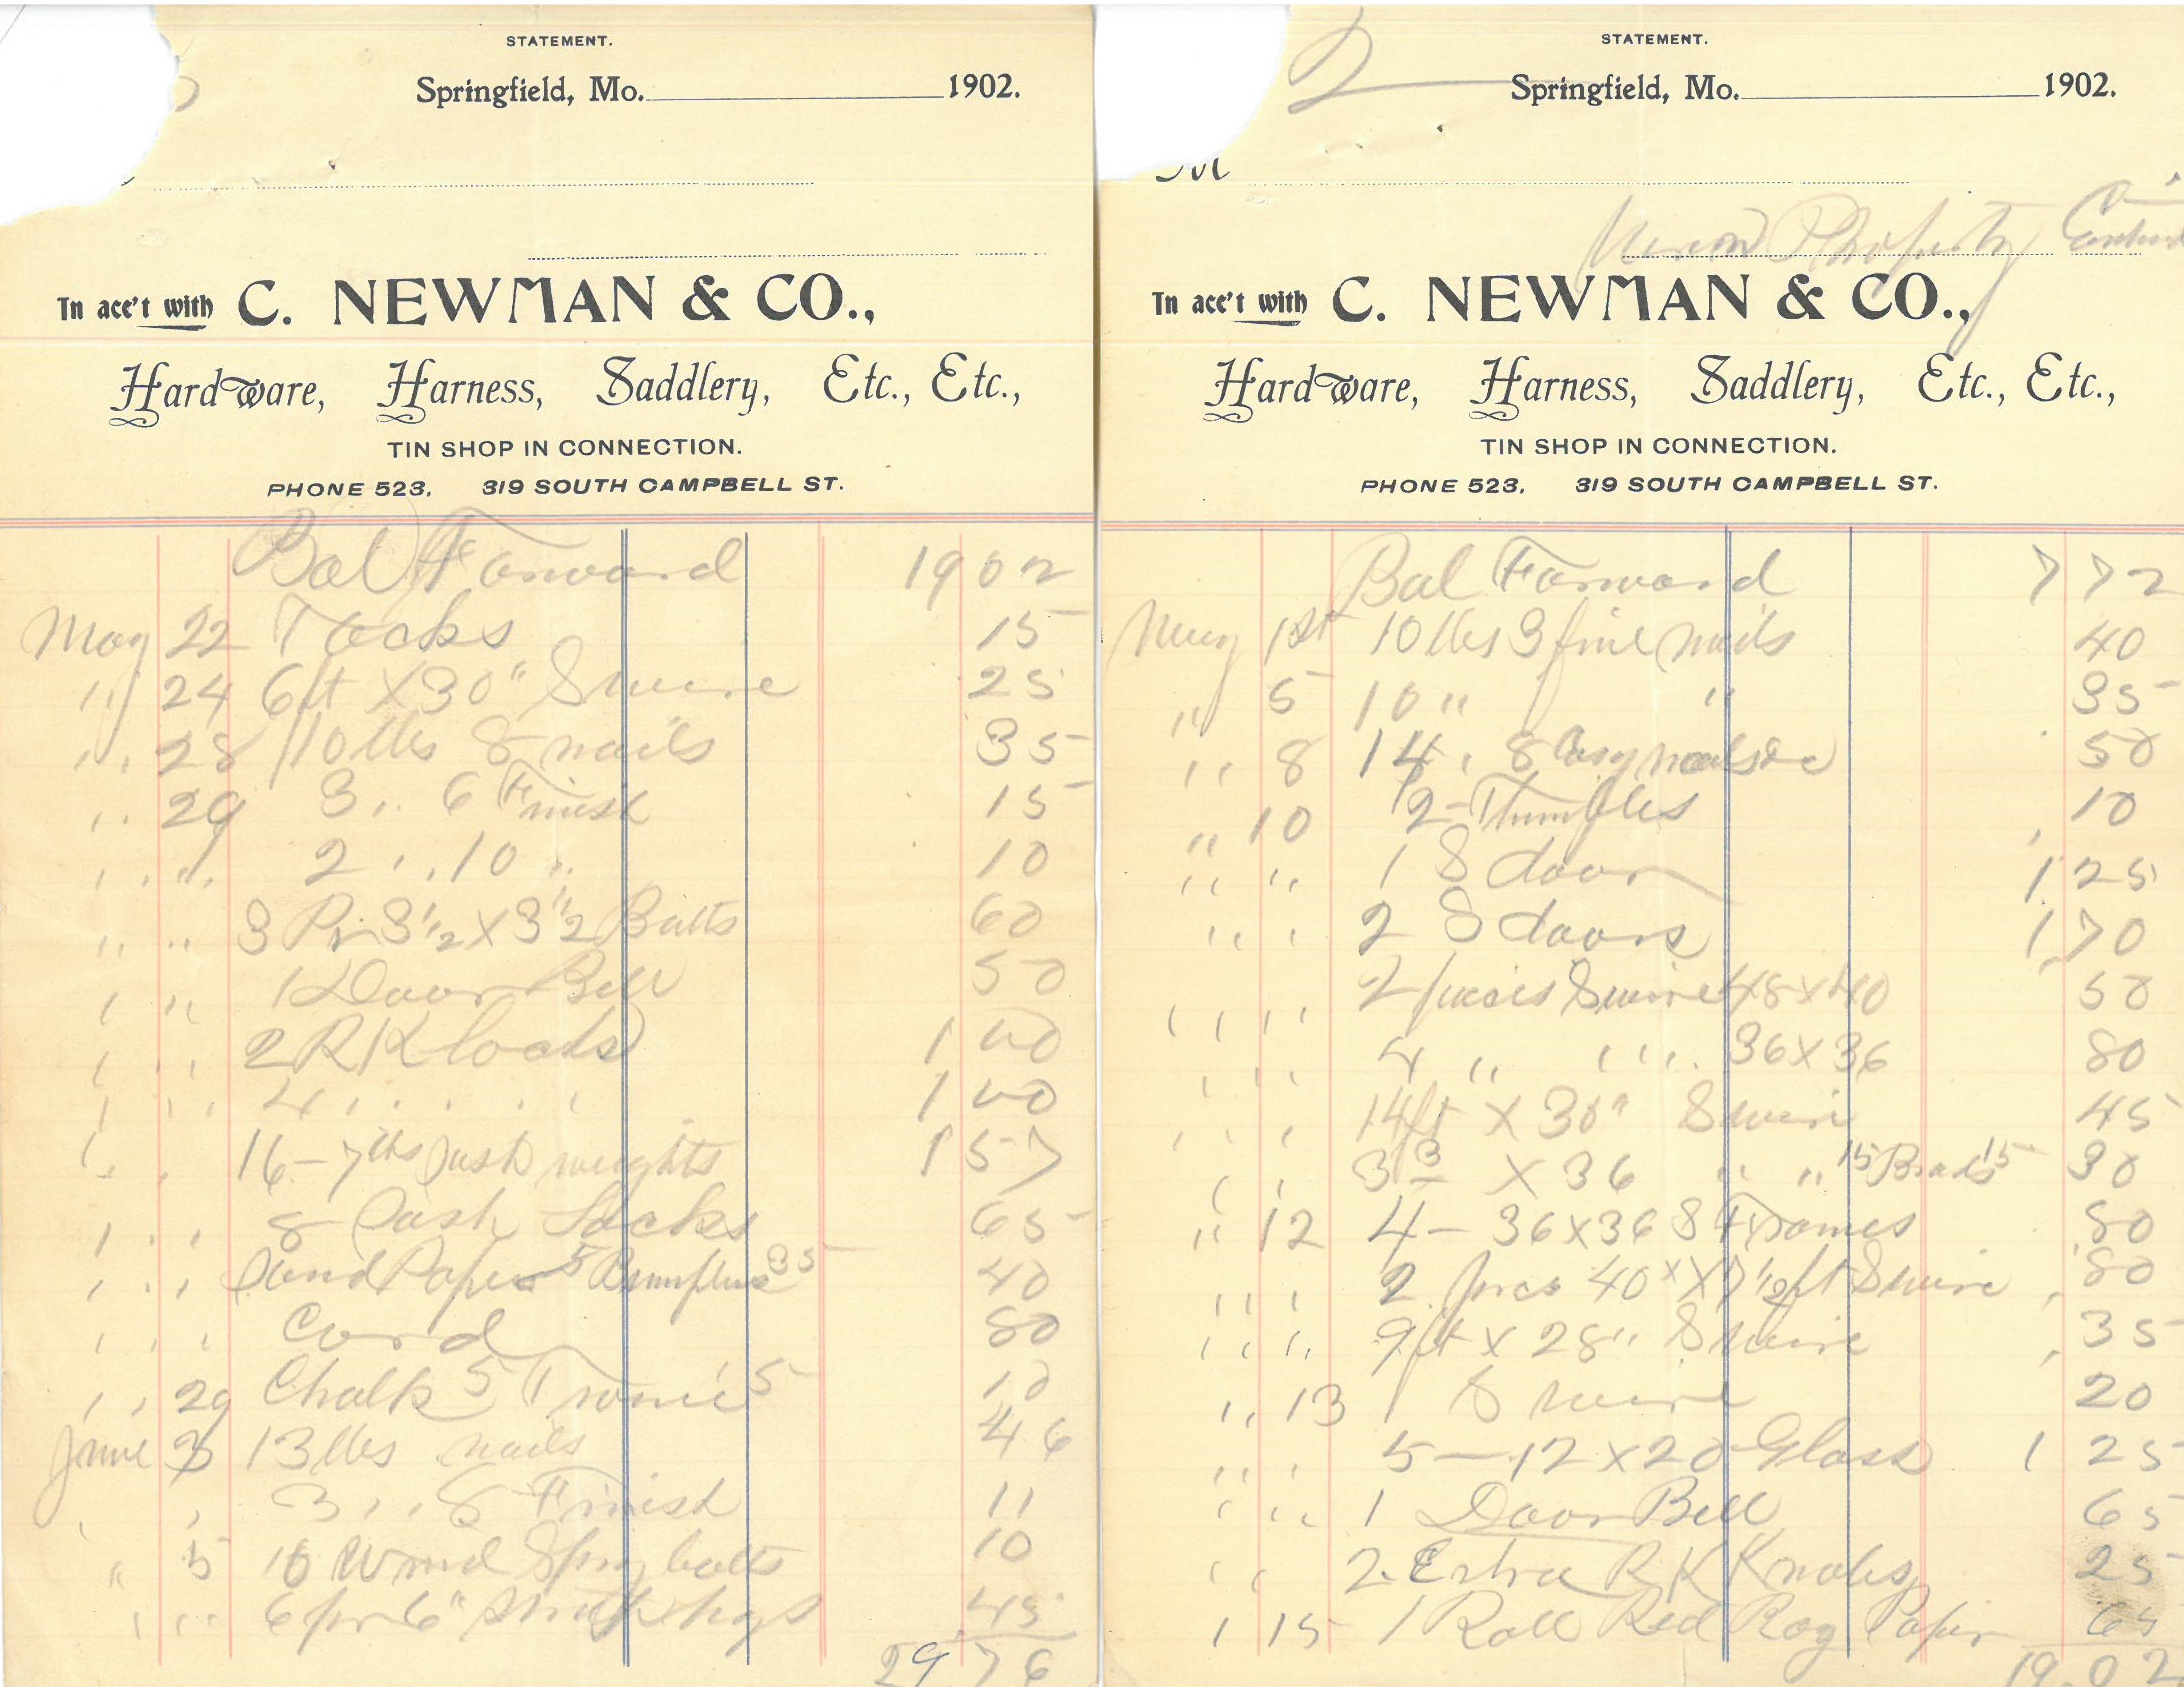 STATEMENT.
Springfield, Mo. 1902.
In acc't with C. NEWMAN & CO.,
Hardware, Harness, Saddlery, Etc., Etc.,
TIN SHOP IN CONNECTION.
PHONE 523. 319 SOUTH CAMPBELL ST.
Bal Forward 19 02
May 22 Tacks 15
" 24 6ft X 30" S wire 25
" 28 10 lbs 8 nails 35
" 29 3 " 6 Finish 15
" " 2 " 10 " 10
" " 3 Pr 3 1/2 X 3 1/2 Butts 60
" " 1 Door Bell 50
" " 2 R K locks 1 00
" " 4 " " " 1 00
" " 16 - 7 lbs Sash weights 1 57
" " 8 Sash Locks 65
" " Sand Paper 5 35 40
" " Cord 80
" 29 Chalk 5 5 10
June 3 13 lbs nails 46
" 3 " 8 Finish 11
" 5 10 Wind Spring bolts 10
" " 6 pr 6" Strap hgs 45
29 76
2
STATEMENT.
Springfield, Mo. 1902.
M
Property
In acc't with C. NEWMAN & CO.,
Hardware, Harness, Saddlery, Etc., Etc.,
TIN SHOP IN CONNECTION.
PHONE 523. 319 SOUTH CAMPBELL ST.
Bal Forward 7 72
May 1st 10 lbs 3 fine nails 40
" 5 10 " " 35
" 8 14 " 8 nails 50
" 10 2 Thimbles 10
" " 1 S door 1 25
" " 2 S doors 1 70
" " 2 pieces S wire 48 x 40 50
" " 4 " " " 36 X 36 80
" " 14ft X 30" S wire 45
" " 3 3 X 36 " " 15 Brads 15 30
" 12 4 - 36 x 36 S Frames 80
" " 2 pces 40 X 7 1/2 ft S wire 80
" " 9ft x 28" S wire 35
" 13 1 S wire 20
" " 5 - 12 x 20 Glass 1 25
" " 1 Door Bell 65
" " 2 Extra R K Knobs 25
" 15 1 Roll Red Rog Paper 65
19.02